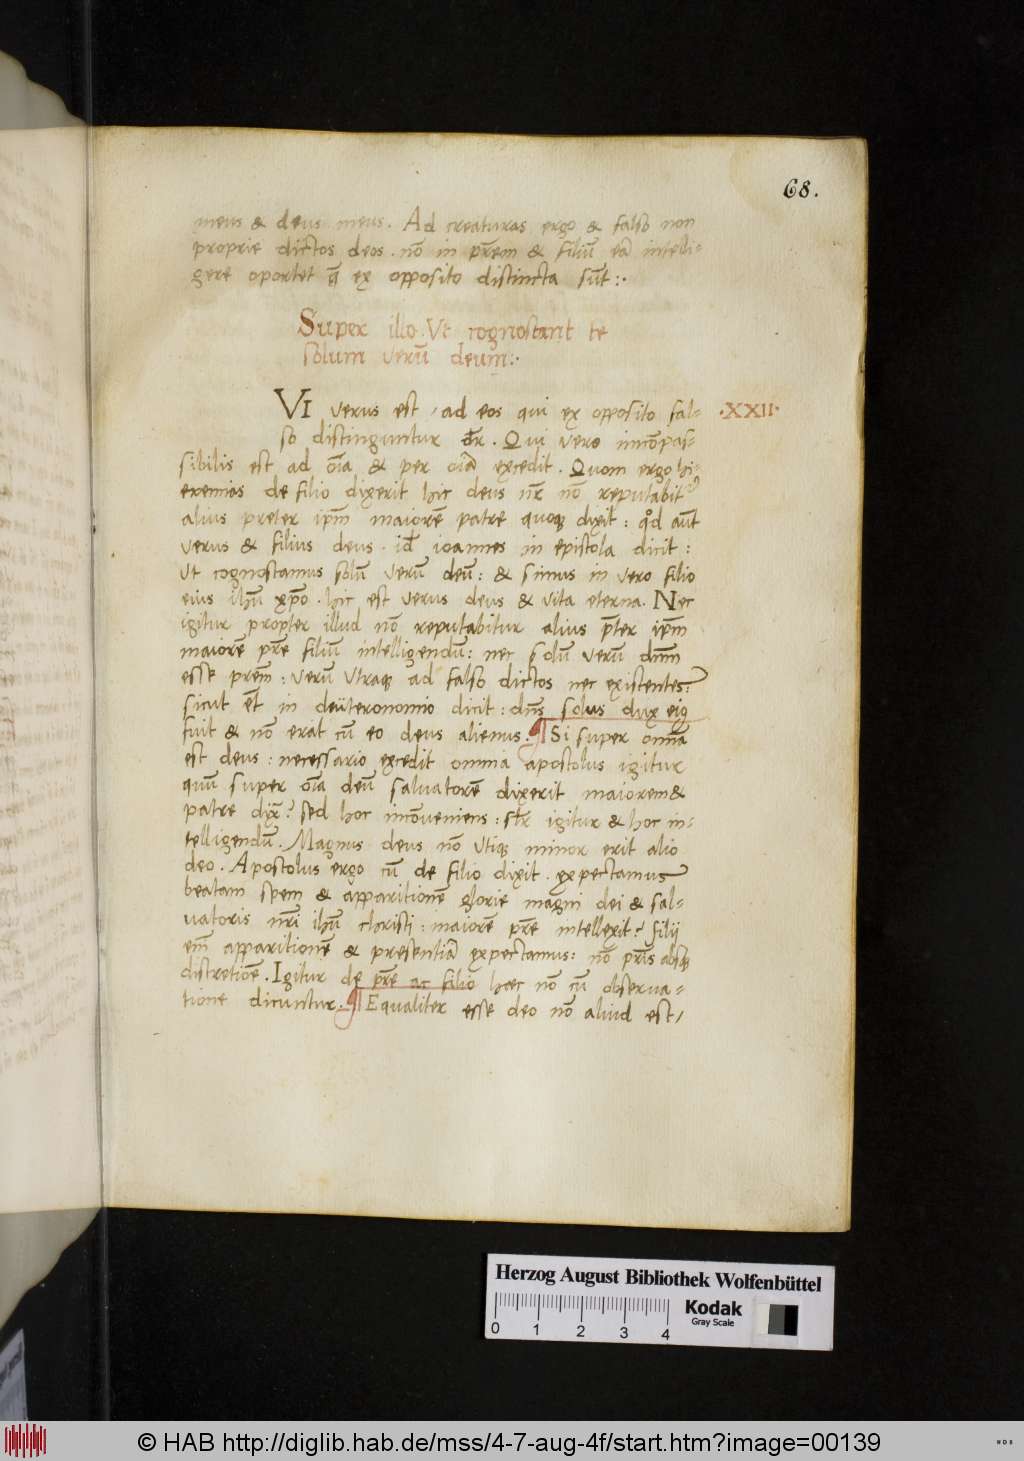 68.
meus & deus meus. Ad creaturas ergo & falso non
proprie dictos deos. nõ in prẽm & filiũ ea intelli-
gere oportet q̃ ex opposito distincta sũt:.
Super illo. Ut cognoscant te
solum verũ deum:.
VI verus est, ad eos qui ex opposito fal- .XXII.
so distinguntur dr̃. Qui vero incõpas-
sibilis est ad oĩa & per oĩa excedit. Quom ergo hi-
eremias de filio dixerit hic deus nr̃ nõ reputabitur
alius preter ipm̃ maiorẽ patre quoq dixit: qd aut̃
verus & filius deus. id ioannes in epistola dicit:
Ut cognoscamus solũ verũ deũ: & simus in vero filio
eius ihũ xp̃o. hic est verus deus & vita eterna. Nec
igitur propter illud nõ reputabitur alius p̃ter ipm̃
maiorẽ pr̃e filiũ intelligendũ: nec solũ verũ dnm̃
esse prẽm: verũ utraq ad falso dictos nec existentes:
sicut et̃ in deüteronomio dicit: dns̃ solus dux eiꝰ
fuit & nõ erat cũ eo deus alienus. ¶ Si super omña
est deus: necessario excedit omnia apostolus igitur
quũ super oĩa deũ salvatorẽ dixerit maiorem &
patre dix̃? sed hoc incõveniens: sr̃ igitur & hoc in-
telligendũ. Magnus deus nõ utiq minor erit alio
deo. Apostolus ergo cũ de filio dixit. expectamus
beatam spem & apparitionẽ glorie magni dei & sal-
vatoris nr̃i ihũ christi: maiorẽ pr̃e intellexit? filij
em̃ apparitionẽ & presentiã expectamus: nõ pr̃is absq
discretiõe. Igitur de pr̃e ac filio haec nõ cũ observa-
tione dicuntur. ¶ Equaliter esse deo nõ aliud est,
Herzog August Bibliothek Wolfenbüttel
0 1 2 3 4
Kodak
Gray Scale
© HAB http://diglib.hab.de/mss/4-7-aug-4f/start.htm?image=00139